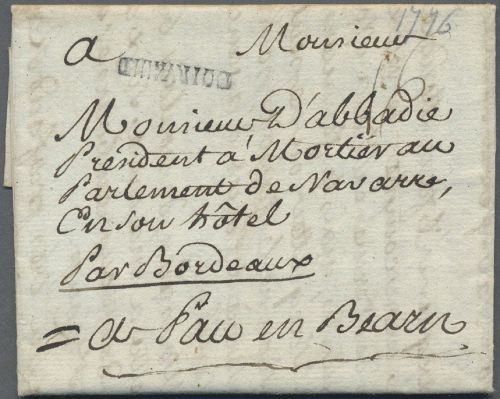 1776
a Monsieur
Monsieur D'abbadie
President a Mortier au
Parlement de Navarre,
En son hôtel
Par Bordeaux
= a Pau en Bearn